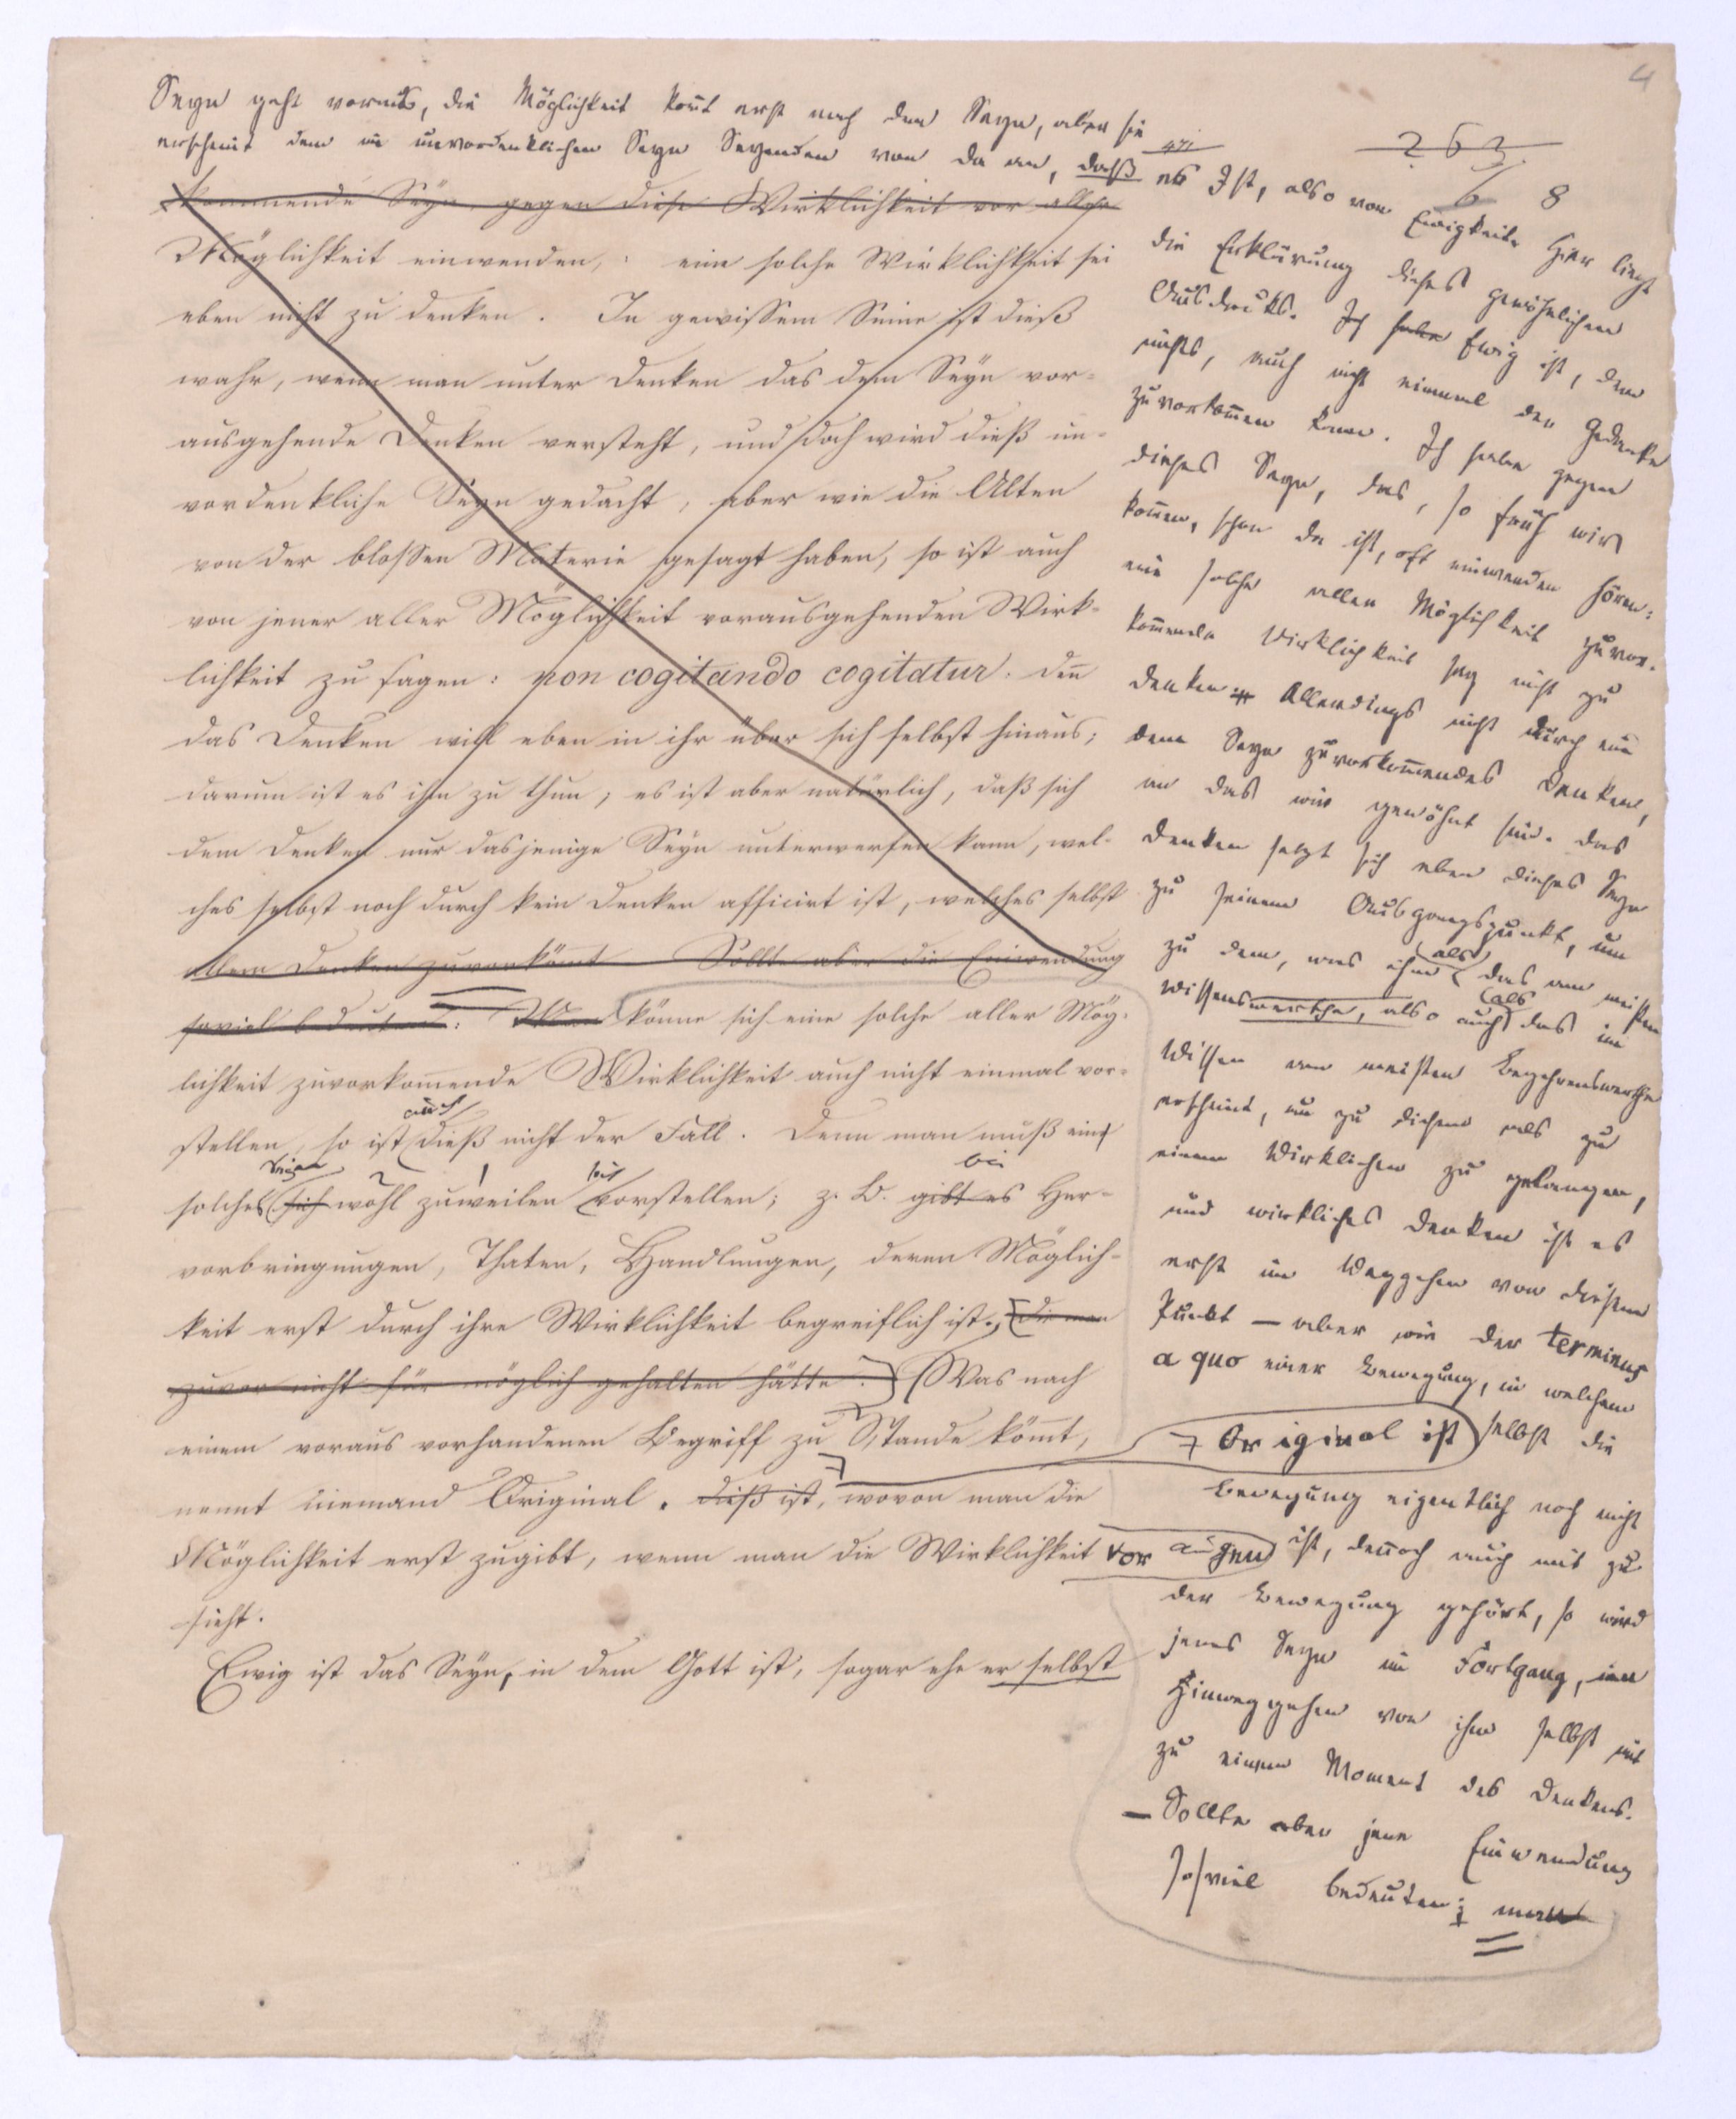 4
263
6 8
Seyn geht voraus, die Möglichkeit kom̄t erst nach dem Seyn, aber sie
erscheint dem im unvordenklichen Seyn Seyenden von da an, daß es Ist, also von Ewigkeit. Hier liegt
kommende Seyn gegen diese Wirklichkeit vor aller
Möglichkeit einwenden, : eine solche Wirklichkeit sei
eben nicht zu denken. In gewissem Sinne ist dieß
wahr, wenn man unter Denken das dem Seyn vor-
ausgehende Denken versteht, und doch wird dieß un-
vordenkliche Seyn gedacht, aber wie die Alten
von der blossen Materie gesagt haben, so ist auch
von jener aller Möglichkeit vorausgehenden Wirk-
lichkeit zu sagen: non cogitando cogitatur. Den̄
das Denken will eben in ihr über sich selbst hinaus;
darum ist es ihm zu thun; es ist aber natürlich, daß sich
dem Denken nur dasjenige Seyn unterwerfen kann, wel-
ches selbst noch durch kein Denken afficirt ist, welches selbst
allem Denken zuvorköm̄t. Sollte aber die Einwendung
soviel bedeuten: Man könne sich eine solche aller Mög-
lichkeit zuvorkom̄ende Wirklichkeit auch nicht einmal vor-
auch
stellen, so ist dieß nicht der Fall. Denn man muß ein
bei
solches sich wohl zuweilen vorstellen; z. B. gibt es Her-
vorbringungen, Thaten, Handlungen, deren Möglich-
keit erst durch ihre Wirklichkeit begreiflich ist. (die man
zuvor nicht für möglich gehalten hätte.) (Was nach
einem voraus vorhandenen Begriff zu Stande köm̄t,
nennt niemand Original. dieß ist, wovon man die
Möglichkeit erst zugibt, wenn man die Wirklichkeit vor Augen
sieht.
Ewig ist das Seyn, in dem Gott ist, sogar ehe er selbst
die Erklärung dieses gewöhnlichen
Ausdrucks. Ich habe Ewig ist, dem
nichts, auch nicht einmal der Gedanke
zuvorkom̄en kann. Ich habe gegen
dieses Seyn, das, so früh wir
kom̄en, schon da ist, oft einwenden hören:
eine solche aller Möglichkeit zuvor-
kom̄ende Wirklichkeit sey nicht zu
denken. Allerdings nicht durch ein
dem Seyn zuvorkom̄endes Denken,
an das wir gewöhnt sind. Das
Denken setzt sich eben dieses Seyn
zu seinem Ausgangspunkt, um
als
zu dem, was ihm das am meisten
als
Wissenswerthe, also auch das im
Wissen am meisten Begehrenswerthe
erscheint, um zu diesem als zu
einem Wirklichen zu gelangen,
und wirkliches Denken ist es
erst im Weggehen von diesem
Punkt – aber wie der terminus
a quo einer Bewegung, in welchem
Original ist
selbst die
Bewegung eigentlich noch nicht
ist, den̄och auch mit zu
der Bewegung gehört, so wird
jenes Seyn im Fortgang, im
Hinweggehen von ihm selbst mit
zu einem Moment des Denkens.
– Sollte aber jene Einwendung
soviel bedeuten: man